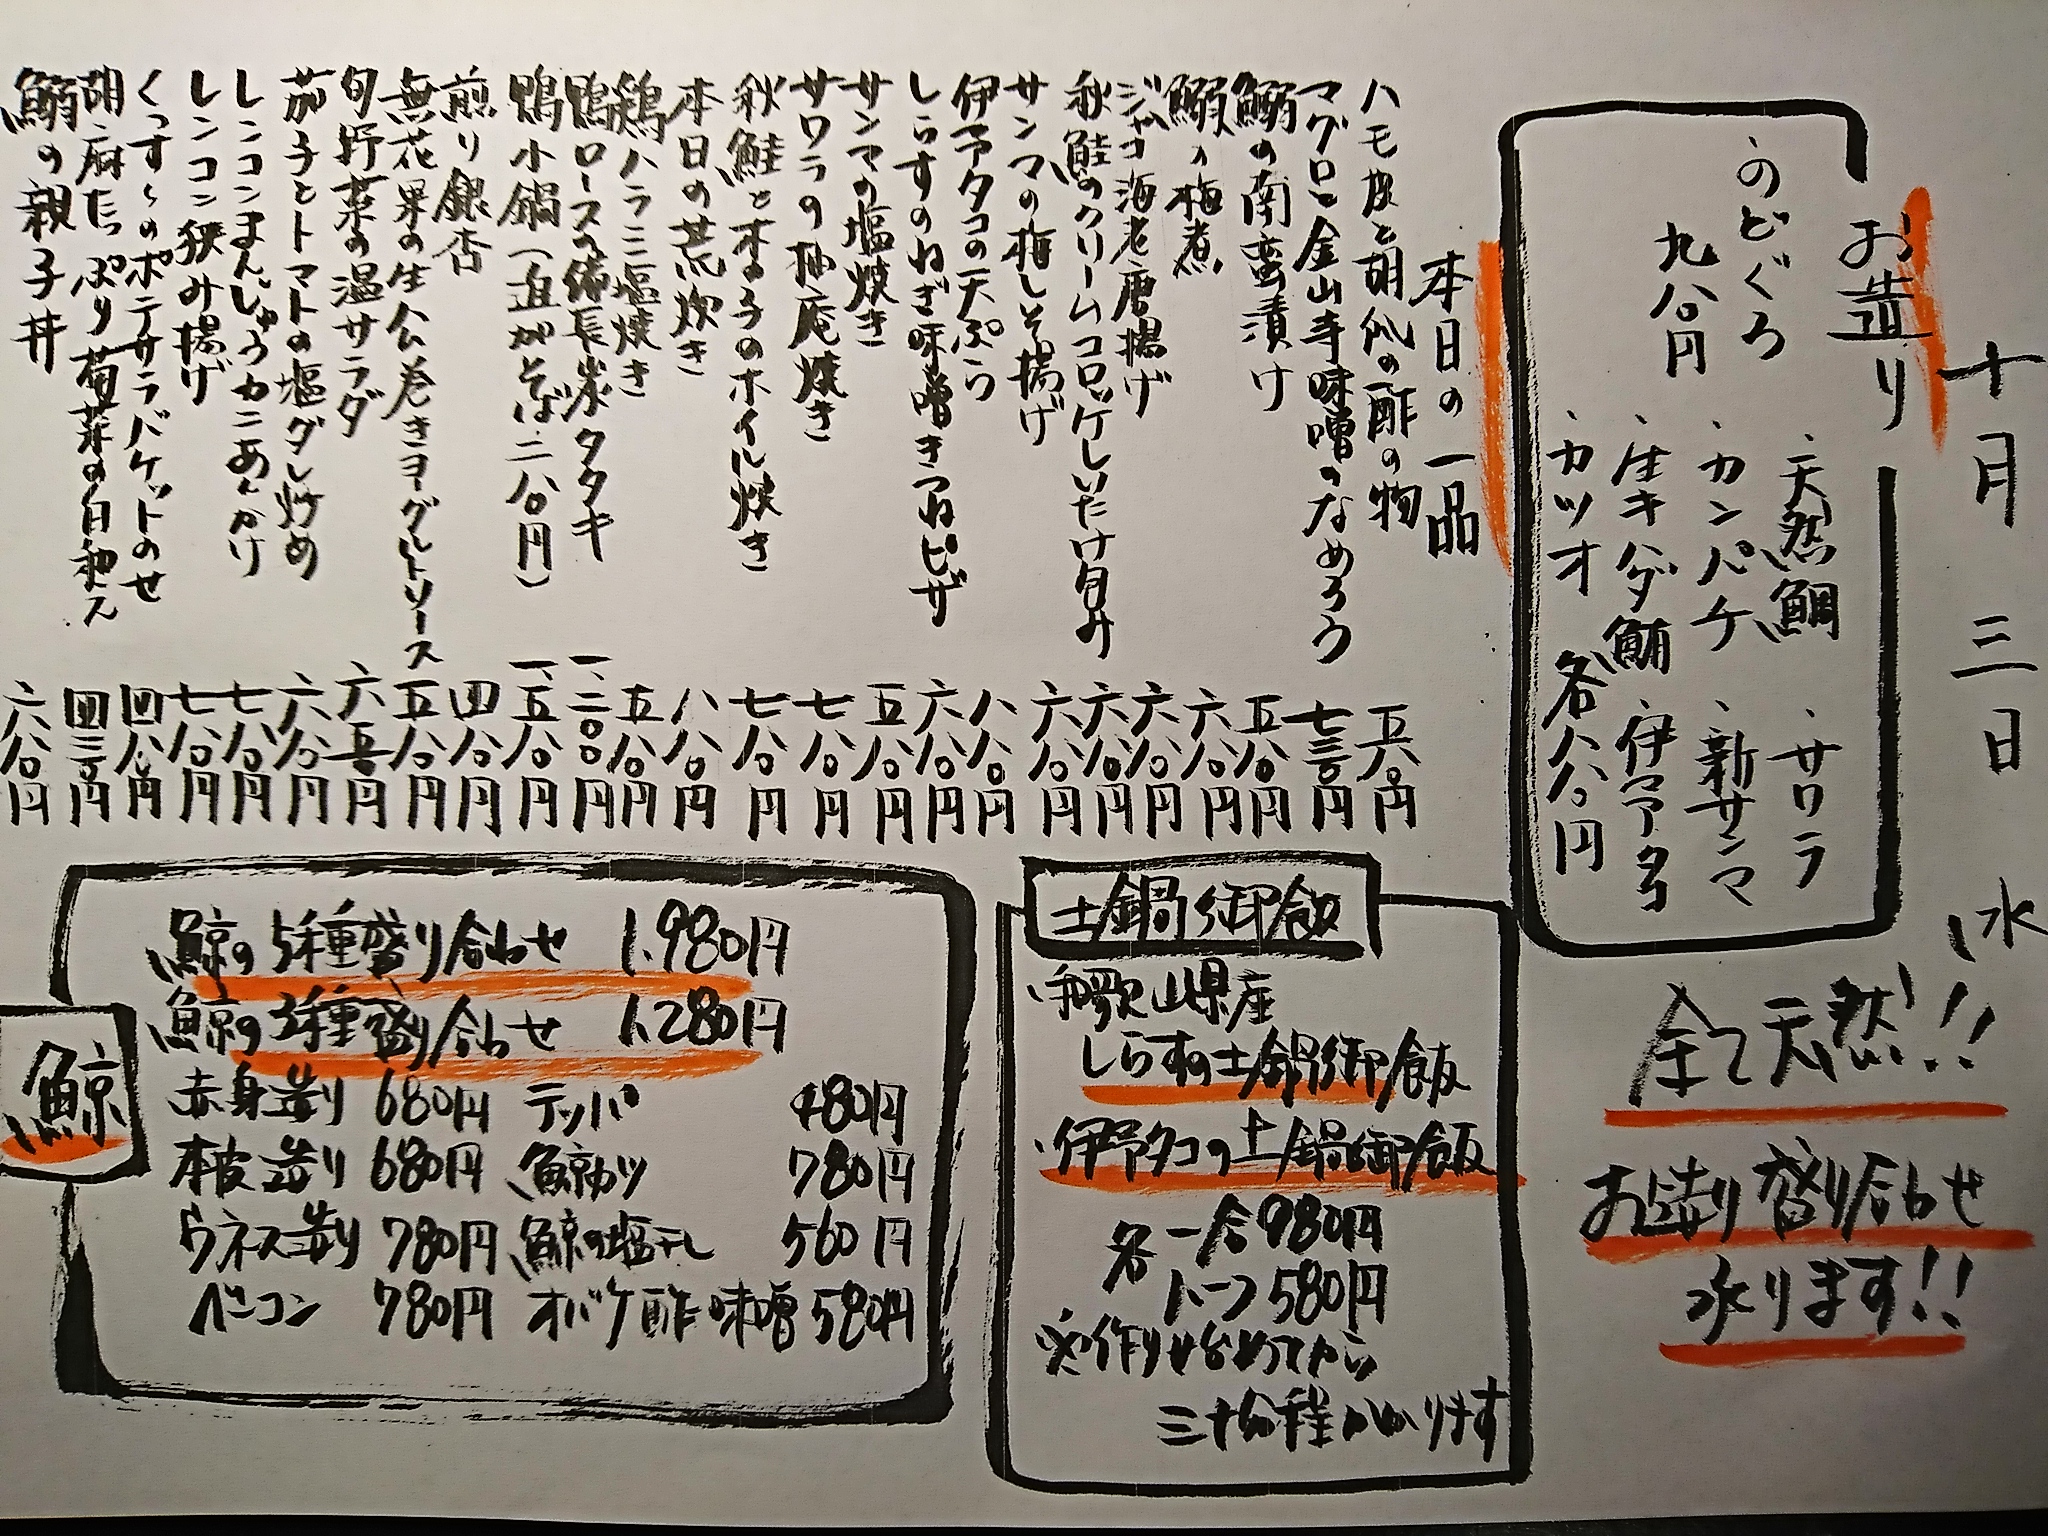 十月三日水
お造り
・のどぐろ
九八〇円
・天然鯛
・サワラ
・カンパチ
・新サンマ
・生キハダ鮪
・伊予タコ
・カツオ
各八八〇円
全て天然!!
お造り盛り合わせ
承ります!!
本日の一品
ハモ皮と胡瓜の酢の物 五六〇円
マグロと金山寺味噌のなめろう 七三〇円
鰯の南蛮漬け 五八〇円
鰯の梅煮 六八〇円
ジャコ海老唐揚げ 六八〇円
秋鮭のクリームコロッケしいたけ包み 六八〇円
サンマの梅しそ揚げ 六八〇円
伊予タコの天ぷら 八八〇円
しらすのねぎ味噌きつねピザ 六八〇円
サンマの塩焼き 五八〇円
サワラの柚庵焼き 七八〇円
秋鮭と木の子のホイル焼き 七八〇円
本日の荒炊き 八八〇円
鶏ハラミ塩焼き 五八〇円
鴨ロースの備長炭タタキ 一、二〇〇円
鴨小鍋(追加そば二八〇円) 一、五八〇円
煎り銀杏 四八〇円
無花果の生ハム巻きヨーグルトソース 五八〇円
旬野菜の温サラダ 六五〇円
茄子とトマトの塩ダレ炒め 六八〇円
レンコンまんじゅうカニあんかけ 七八〇円
レンコン挟み揚げ 七八〇円
のポテサラバケットのせ 四八〇円
胡麻たっぷり菊菜の白和え 四三〇円
鰯の親子丼 六八〇円
土鍋御飯
・和歌山県産
しらすの土鍋御飯
・伊予タコの土鍋御飯
各一合980円
ハーフ580円
※作りはじめてから
三十分程かかります
鯨
鯨の5種盛り合わせ 1,980円
鯨の3種盛り合わせ 1,280円
赤身造り 680円 テッパ 480円
本皮造り 680円 鯨カツ 780円
ウネス造り 780円 鯨の塩干し 560円
ベーコン 780円 オバケ酢味噌 580円